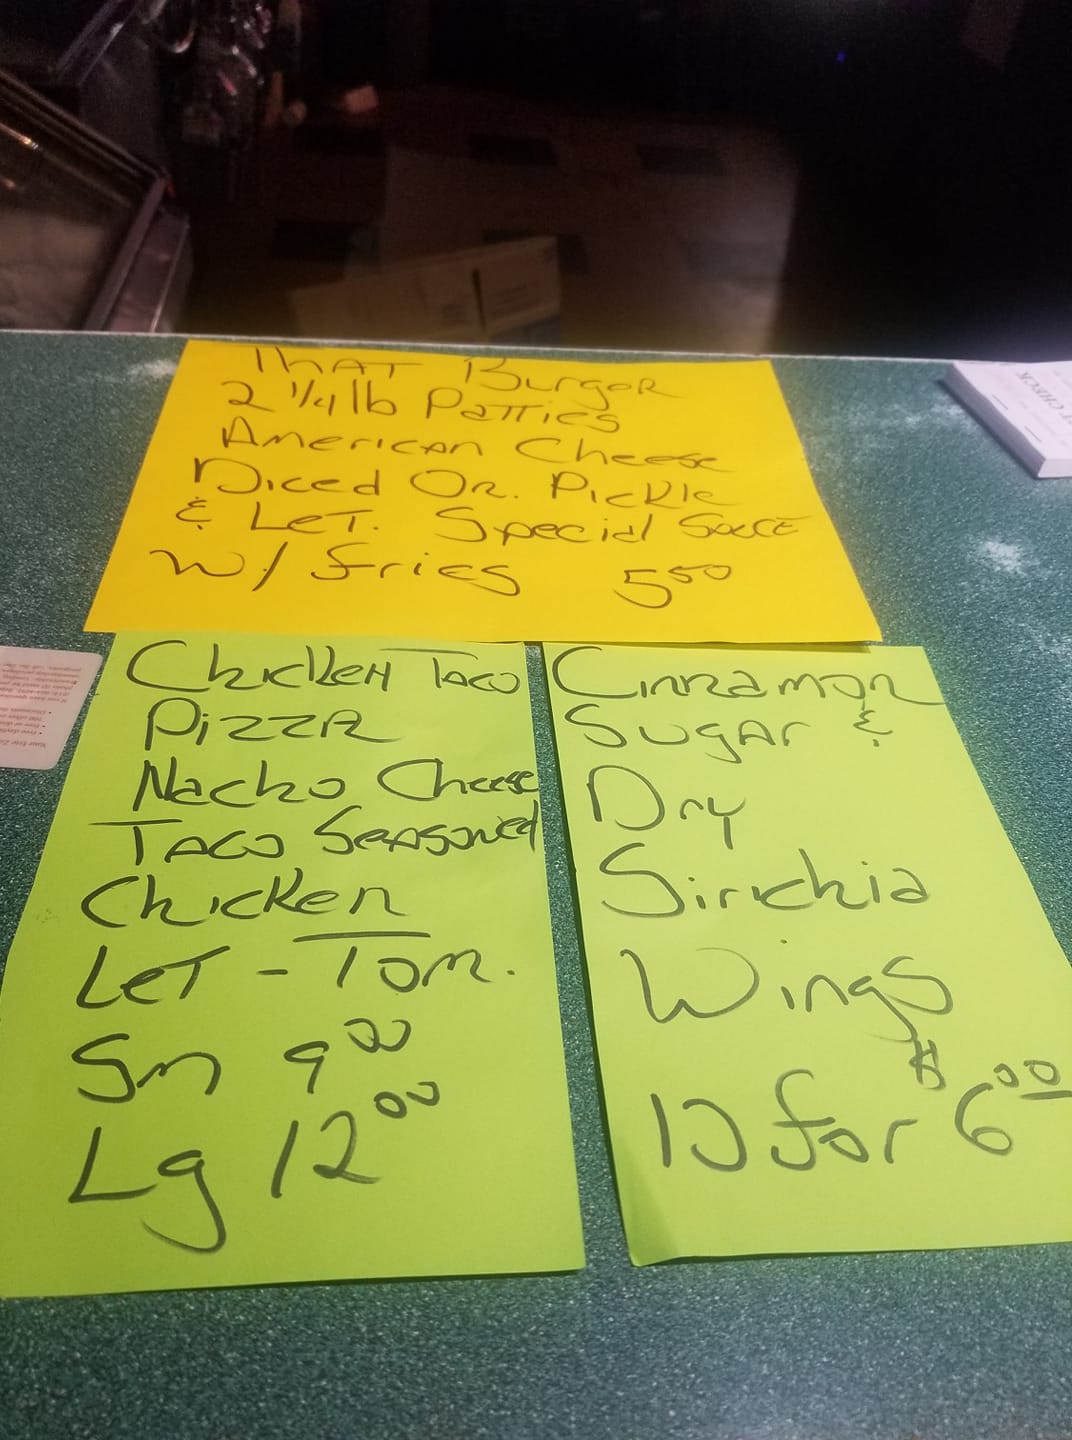 THAT BURGOR
2 1/4 lb PATTIES
AMERICAN CHEESE
DICED OR. PICKLE
& LET. SPECIAL SAUCE
W/ FRIES 5⁵⁰
CHICKEN TACO
PIZZA
NACHO CHEESE
TACO SEASONED
CHICKEN
LET - TOM.
Sm 9⁰⁰
Lg 12⁰⁰
Cinnamon
Sugar &
Dry
Sirichia
Wings
10 for $6⁰⁰
T CHECK